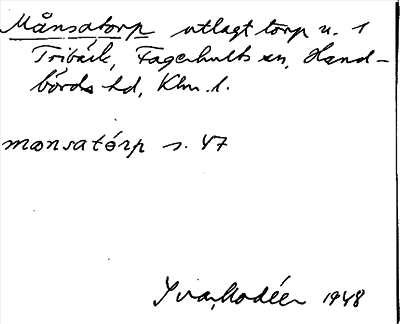 Månsatorp utlagt torp u. 1
Tribäck, Fagerhults sn, Hand-
börds hd, Klm. l.
mɷnsatórp s. 47
Ivar Modéer 1948